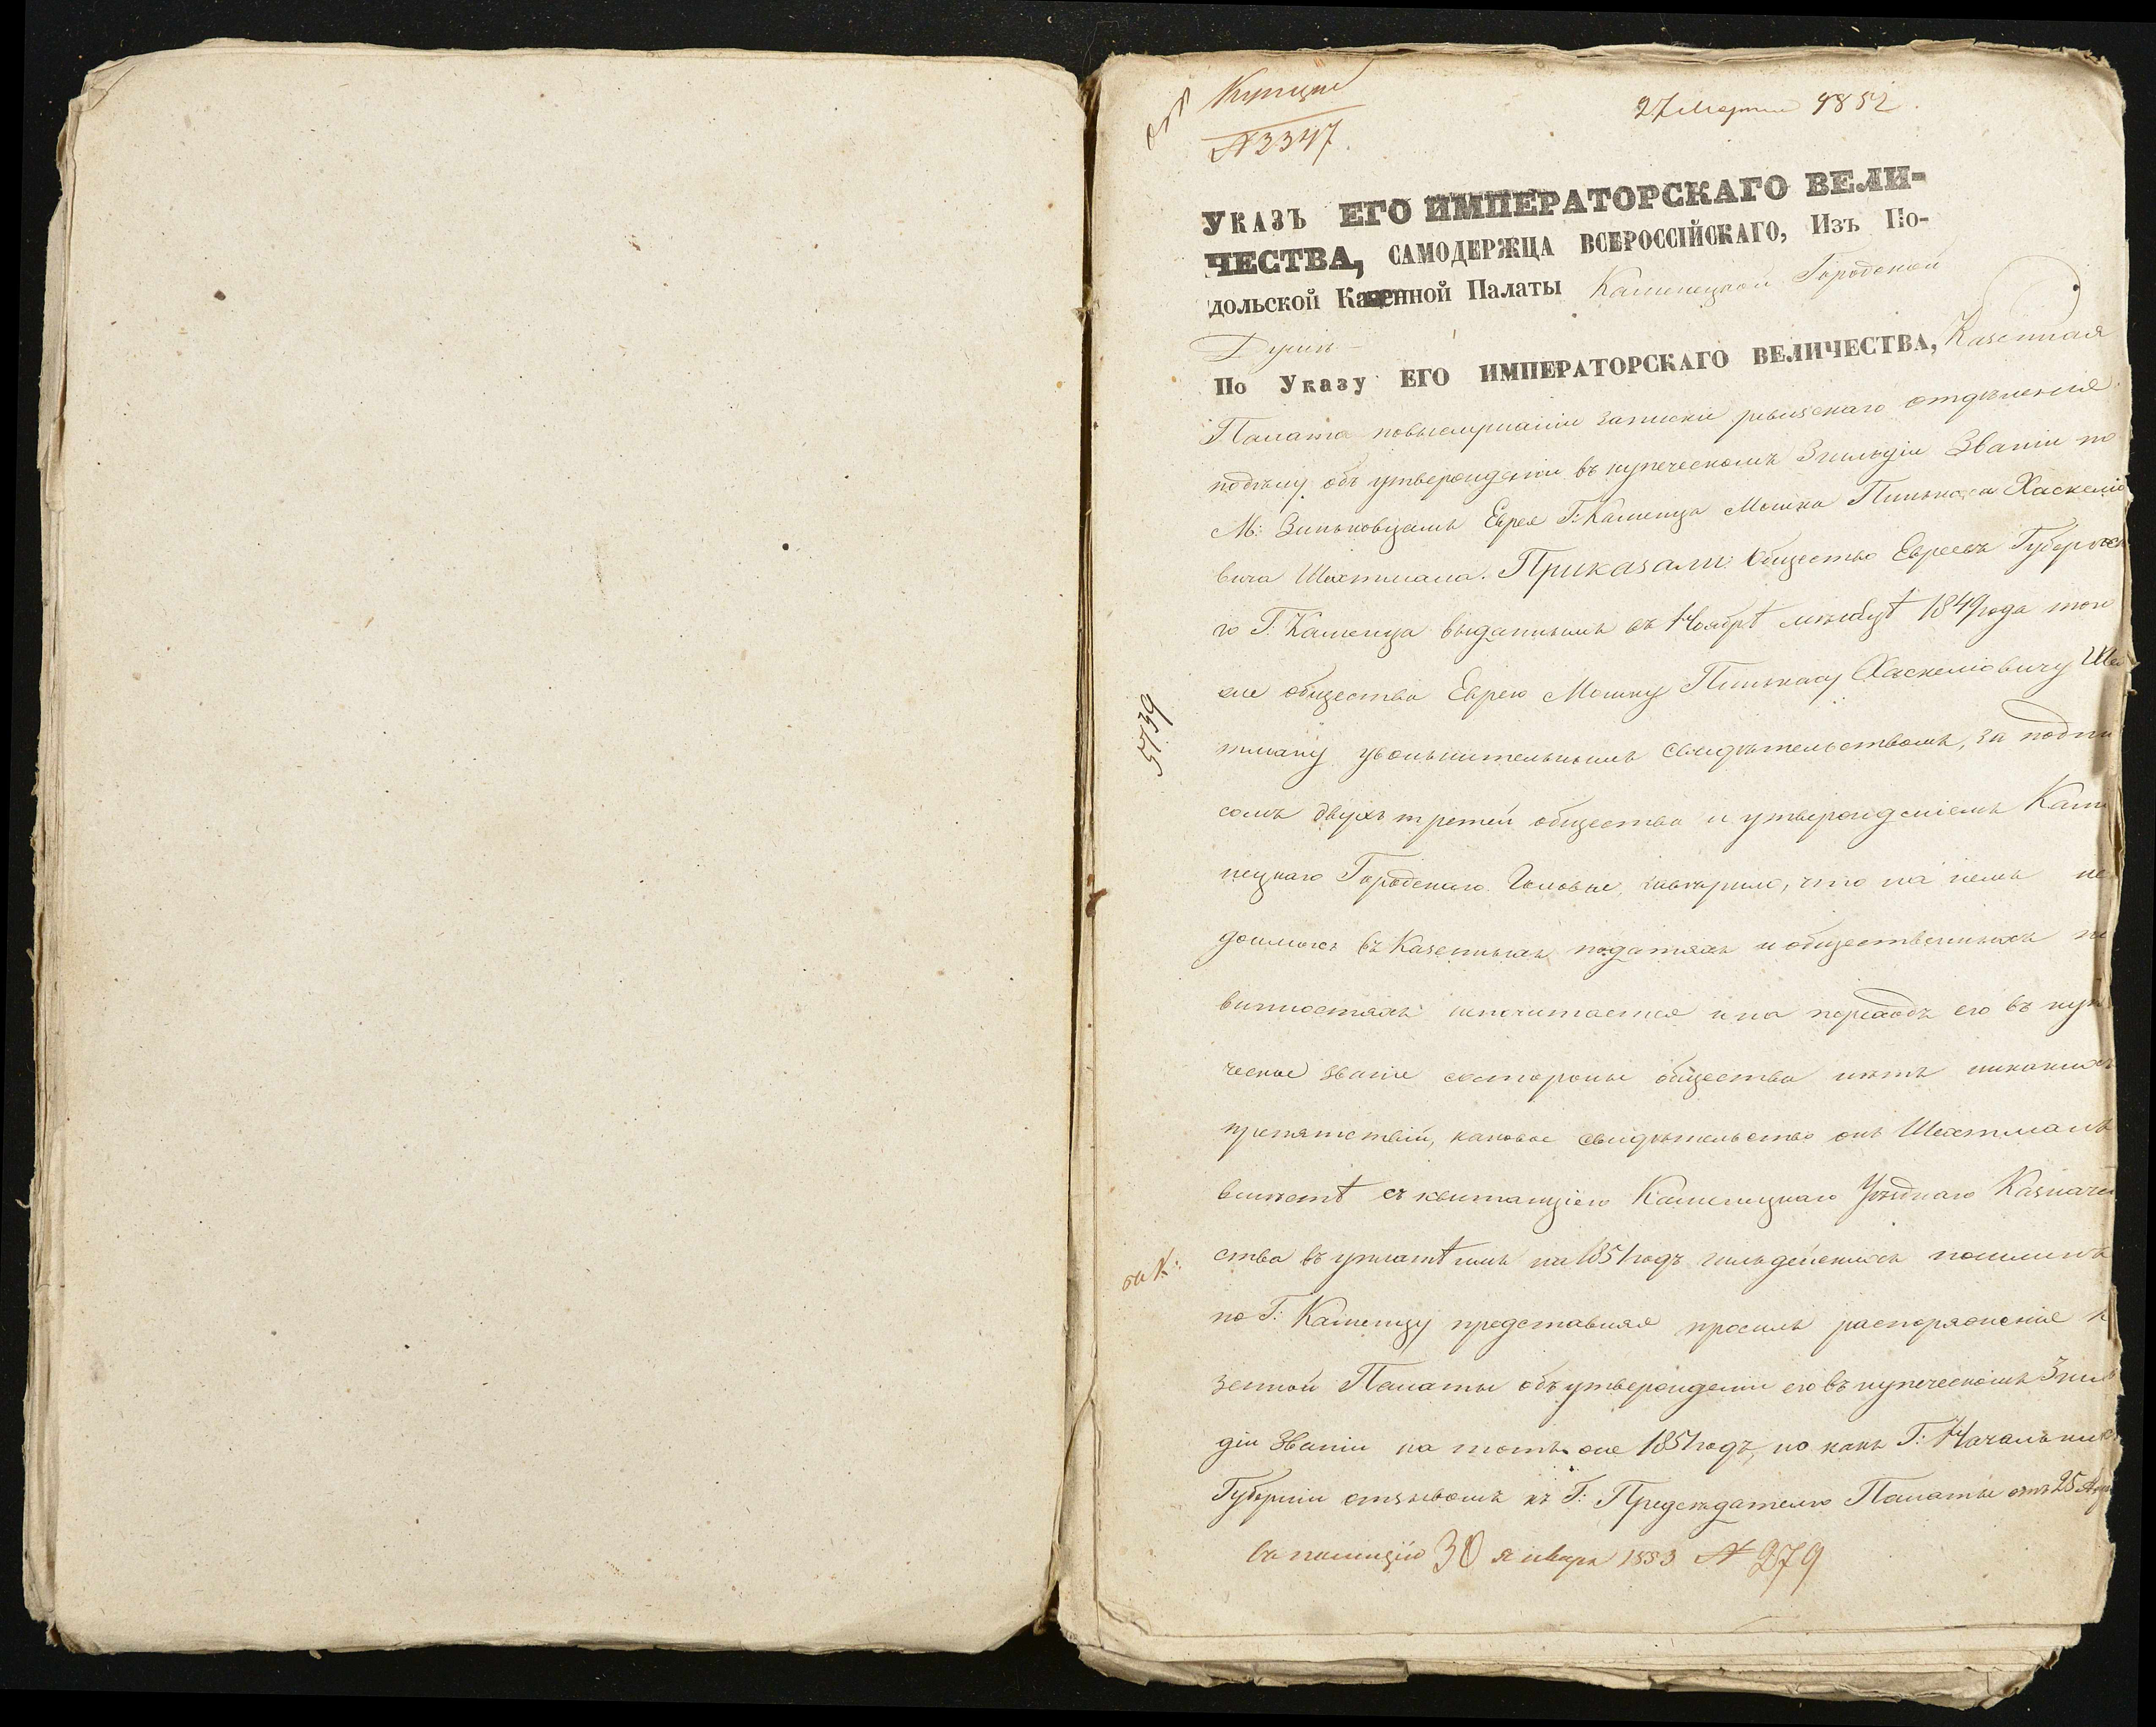 Купцы
№ 3347.
27 Марта 1852.
Указъ ЕГО ИМПЕРАТОРСКАГО ВЕЛИ-
ЧЕСТВА, САМОДЕРЖЦА ВСЕРОССІЙСКАГО, Изъ По-
дольской Казенной Палаты Каменецкой Городской
Думѣ
По Указу ЕГО ИМПЕРАТОРСКАГО ВЕЛИЧЕСТВА, Казенная
Палата повыслушаніи записки ревизскаго отдѣленія
подѣлу объ утвержденіи въ купеческомъ 3 гильдіи Званіи по
М: Зиньковцамъ Еврея Г: Каменца Мошка Пинькаса Хаскеліо
вича Шехтмана. Приказали: Общество Евреевъ Губернск
го Г. Каменца выданнымъ въ Ноябрѣ мѣсяцѣ 1849 года того
же общества Еврею Мошку Пинькасу Хаскеліовичу Ше
тману увольнительнымъ свидѣтельствомъ, за подпи
сомъ двухъ третей общества и утвержденіемъ Каме
нецкаго Городскаго Головы, завѣрило, что на немъ не
доимокъ въ Казенныхъ податяхъ и общественныхъ по
винностяхъ непочитается и на переходъ его въ купе
ческое званіе состороны общества нѣтъ никакихъ
препятствій, каковое свидѣтельство онъ Шехтманъ
вмѣстѣ съ квитанціею Каменецкаго Уѣзднаго Казначей
ства въ уплатѣ имъ на 1851 годъ гильдейскихъ пошлинъ
по Г: Каменцу представляя просилъ распоряженія К
зенной Палаты объ утвержденіи его въ купеческомъ 3 гиль
діи Званіи на тотъ же 1851 годъ, но какъ Г: Начальник
Губерніи отзывомъ къ Г: Предсѣдателю Палаты отъ 25 Апр
5739
въ полицію 30 января 1853 № 279